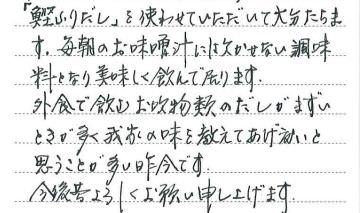 「鰹ふりだし」を使わせていただいて大分たちま
す。毎朝のお味噌汁には欠かせない調味
料となり美味しく飲んで居ります。
外食で飲むお吸物類のだしがまずい
ときが多く我家の味を教えてあげたいと
思うことが多い昨今です。
今後共よろしくお願い申し上げます。